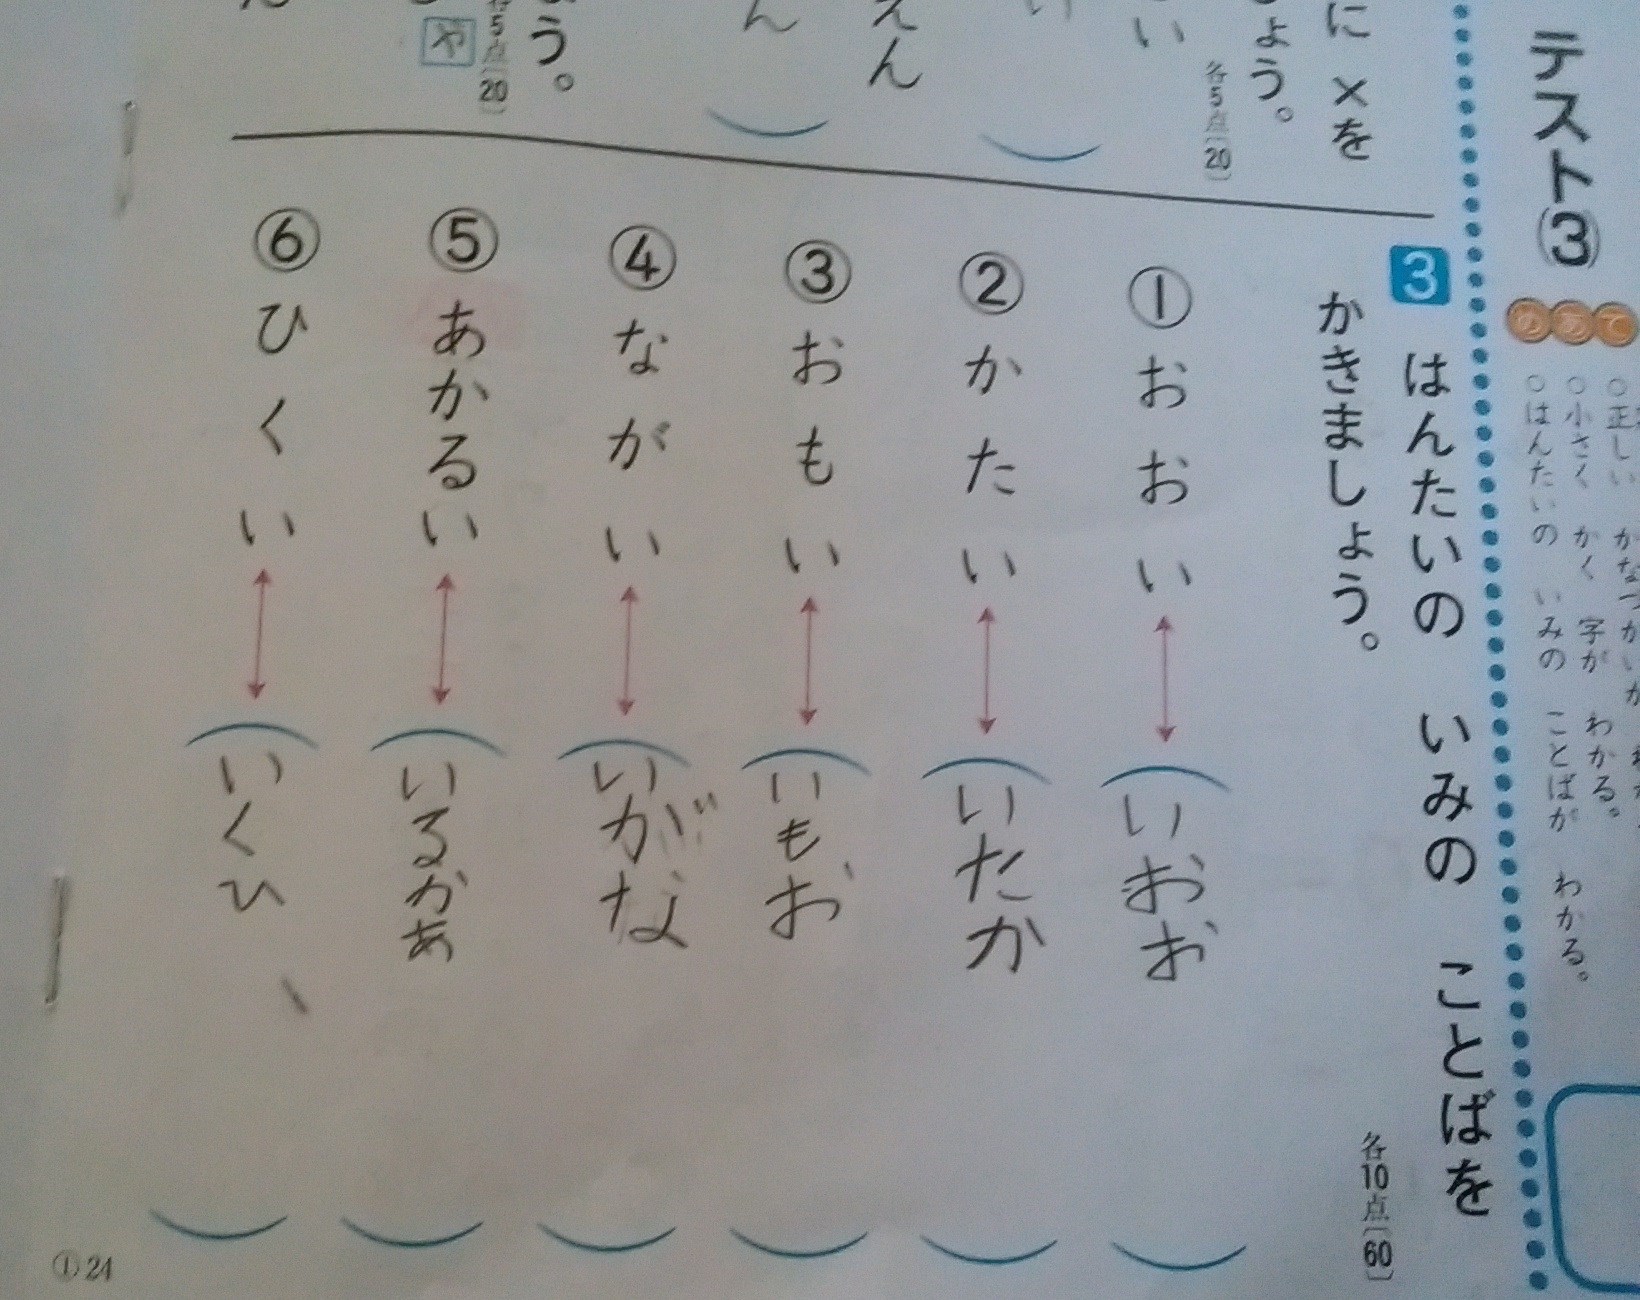 テスト(3)
○正しい かなづかいが
○小さく かく 字が わかる。
○はんたいの いみの ことばが わかる。
に ×を
ょう。
各5点〔20〕
い
えん
ん
う。
各5点〔20〕
や
3 はんたいの いみの ことばを
かきましょう。
各10点〔60〕
①おおい↔(いおお)
②かたい↔(いたか)
③おもい↔(いもお)
④ながい↔(いがな)
⑤あかるい↔(いるかあ)
⑥ひくい↔(いくひ)
①24